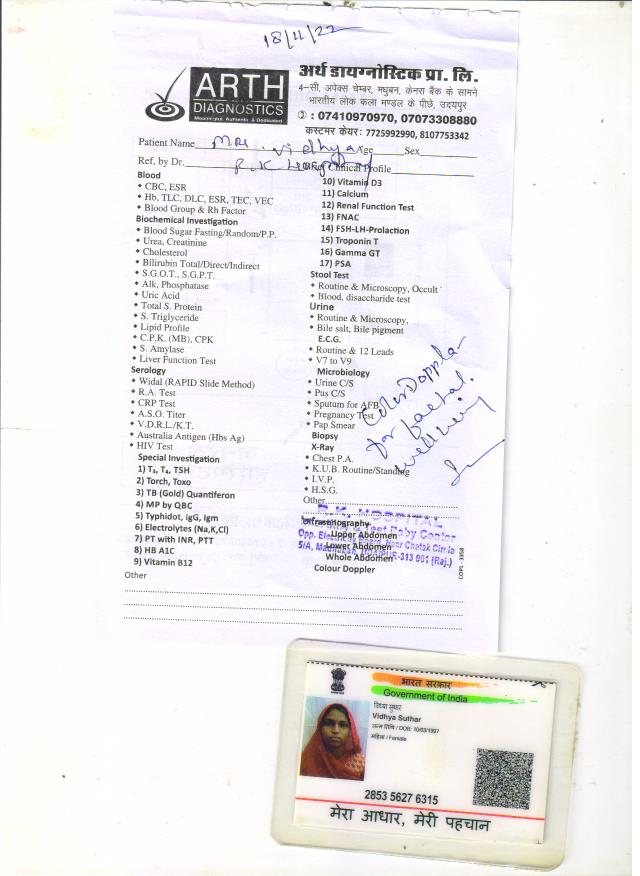 18/11/22
ARTH
DIAGNOSTICS
Meaningful, Authentic & Dedicated
अर्थ डायग्नोस्टिक प्रा. लि.
4–सी, अपेक्स चेम्बर, मधुबन, केनरा बैंक के सामने
भारतीय लोक कला मण्डल के पीछे, उदयपुर
: 07410970970, 07073308880
कस्टमर केयर: 7725992990, 8107753342
Patient Name Mrs. Vidhya Age Sex
Ref, by Dr. R.K Hospital Clinical Profile
Blood
CBC, ESR
Hb, TLC, DLC, ESR, TEC, VEC
Blood Group & Rh Factor
Biochemical Investigation
Blood Sugar Fasting/Random/P.P.
Urea, Creatinine
Cholesterol
Bilirubin Total/Direct/Indirect
S.G.O.T., S.G.P.T.
Alk, Phosphatase
Uric Acid
Total S. Protein
S. Triglyceride
Lipid Profile
C.P.K. (MB), CPK
S. Amylase
Liver Function Test
Serology
Widal (RAPID Slide Method)
R.A. Test
CRP Test
A.S.O. Titer
V.D.R.L./K.T.
Australia Antigen (Hbs Ag)
HIV Test
Special Investigation
1) T₃, T₄, TSH
2) Torch, Toxo
3) TB (Gold) Quantiferon
4) MP by QBC
5) Typhidot, igG, Igm
6) Electrolytes (Na,K,Cl)
7) PT with INR, PTT
8) HB A1C
9) Vitamin B12
Other
10) Vitamin D3
11) Calcium
12) Renal Function Test
13) FNAC
14) FSH-LH-Prolaction
15) Troponin T
16) Gamma GT
17) PSA
Stool Test
Routine & Microscopy, Occult
Blood, disaccharide test
Urine
Routine & Microscopy,
Bile salt, Bile pigment
E.C.G.
Routine & 12 Leads
V7 to V9
Microbiology
Urine C/S
Pus C/S
Sputum for AFB
Pregnancy Test
Pap Smear
Biopsy
X-Ray
Chest P.A.
K.U.B. Routine/Standing
I.V.P.
H.S.G.
Other
Color Doppla-
for faetal
wellbeing
R.K. HOSPITAL
Test Baby Center
Opp. Electricity Board, Near Chetak Circle
5/A, Madhuban, UDAIPUR-313 001 (Raj.)
Ultrasonography
Upper Abdomen
Lower Abdomen
Whole Abdomen
Colour Doppler
COPL - 3358
भारत सरकार
Government of India
विध्या सुथार
Vidhya Suthar
जन्म तिथि / DOB: 10/03/1997
महिला / Female
2853 5627 6315
मेरा आधार, मेरी पहचान